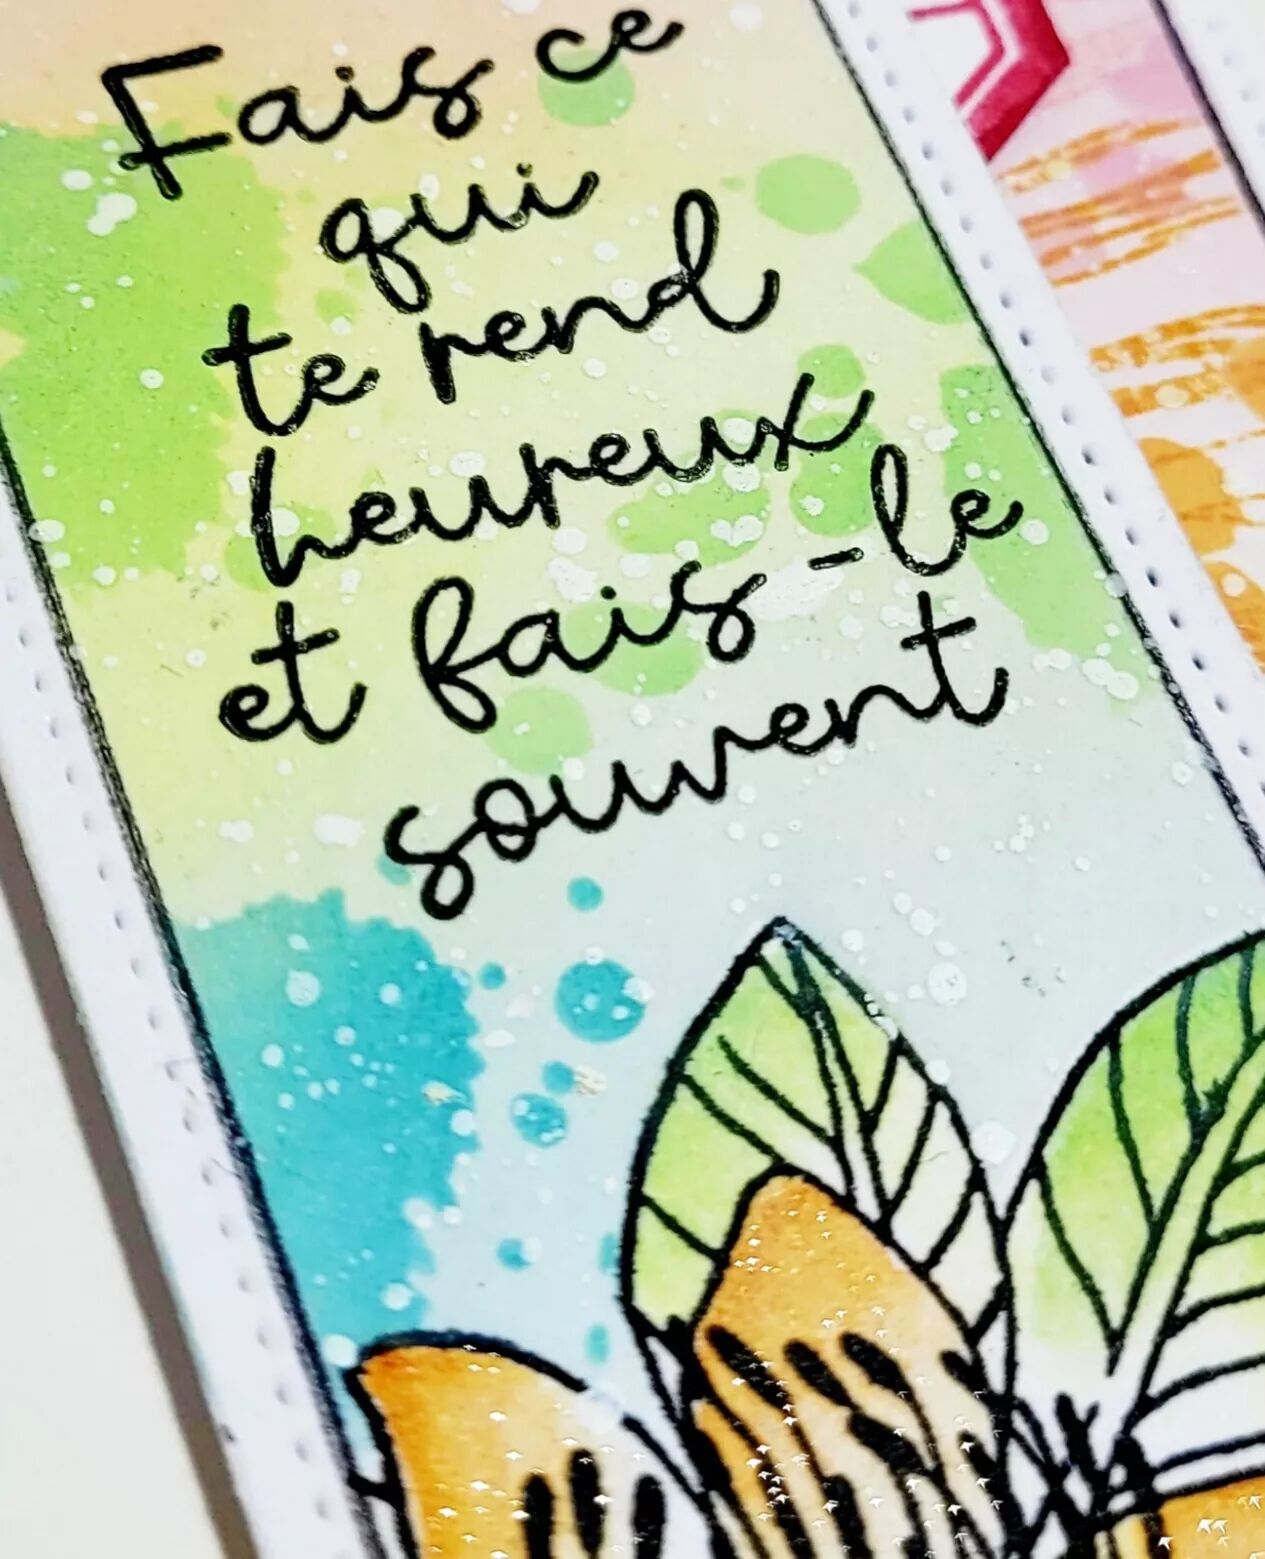 Fais ce
qui
te rend
heureux
et fais-le
souvent